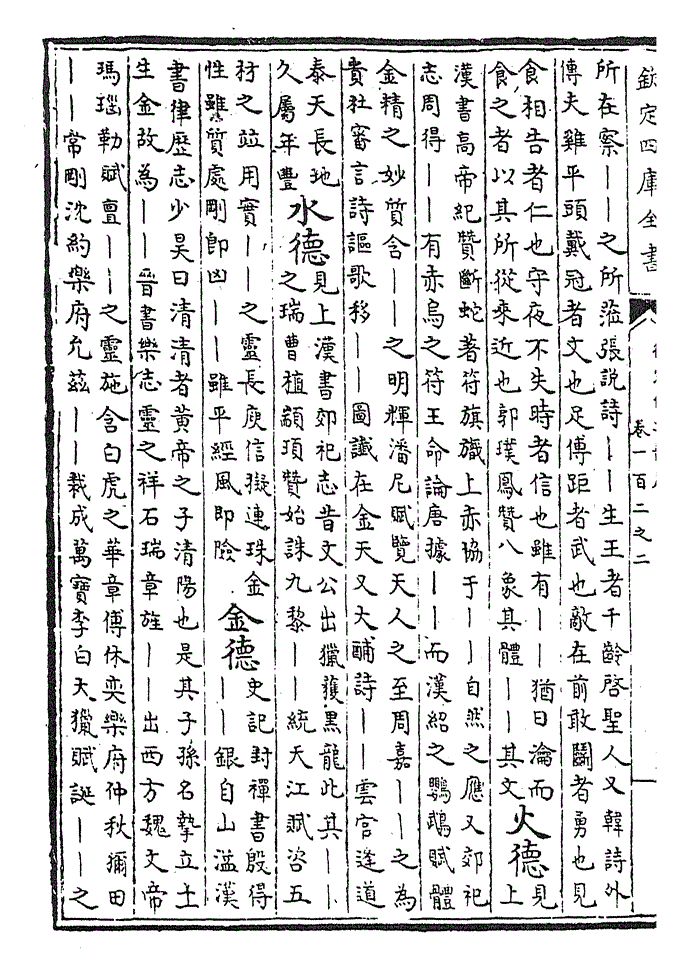 欽定四庫全書
卷一百二之二
所在察——之所蒞張説詩——生王者千齡啓聖人又韓詩外
傳夫雞平頭戴冠者文也足傅距者武也敵在前敢鬭者勇也見
食相告者仁也守夜不失時者信也雖有——猶日瀹而
食之者以其所從來近也郭璞鳳贊八象其體——其文
火德
見
上
漢書高帝紀贊斷蛇著符旗幟上赤協于——自然之應又郊祀
志周得——有赤烏之符王命論唐據——而漢紹之鸚鵡賦體
金精之妙質含——之明輝潘尼賦覽天人之至周嘉——之為
貴杜審言詩謳歌移——圖讖在金天又大酺詩——雲官逢道
泰天長地
久屬年豐
水德
見上漢書郊祀志昔文公出獵獲黑龍此其——
之瑞曹植顓頊贊始誅九黎——統天江賦咨五
材之竝用實——之靈長庾信擬連珠金
性雖質處剛卽凶——雖平經風卽險
金德
史記封禪書殷得
——銀自山溢漢
書律歷志少昊曰清清者黄帝之子清陽也是其子孫名摯立土
生金故為——晉書樂志靈之祥石瑞章旌——出西方魏文帝
瑪瑙勒賦亶——之靈施含白虎之華章傅休奕樂府仲秋獮田
——常剛沈約樂府允兹——裁成萬寶李白大獵賦誕——之